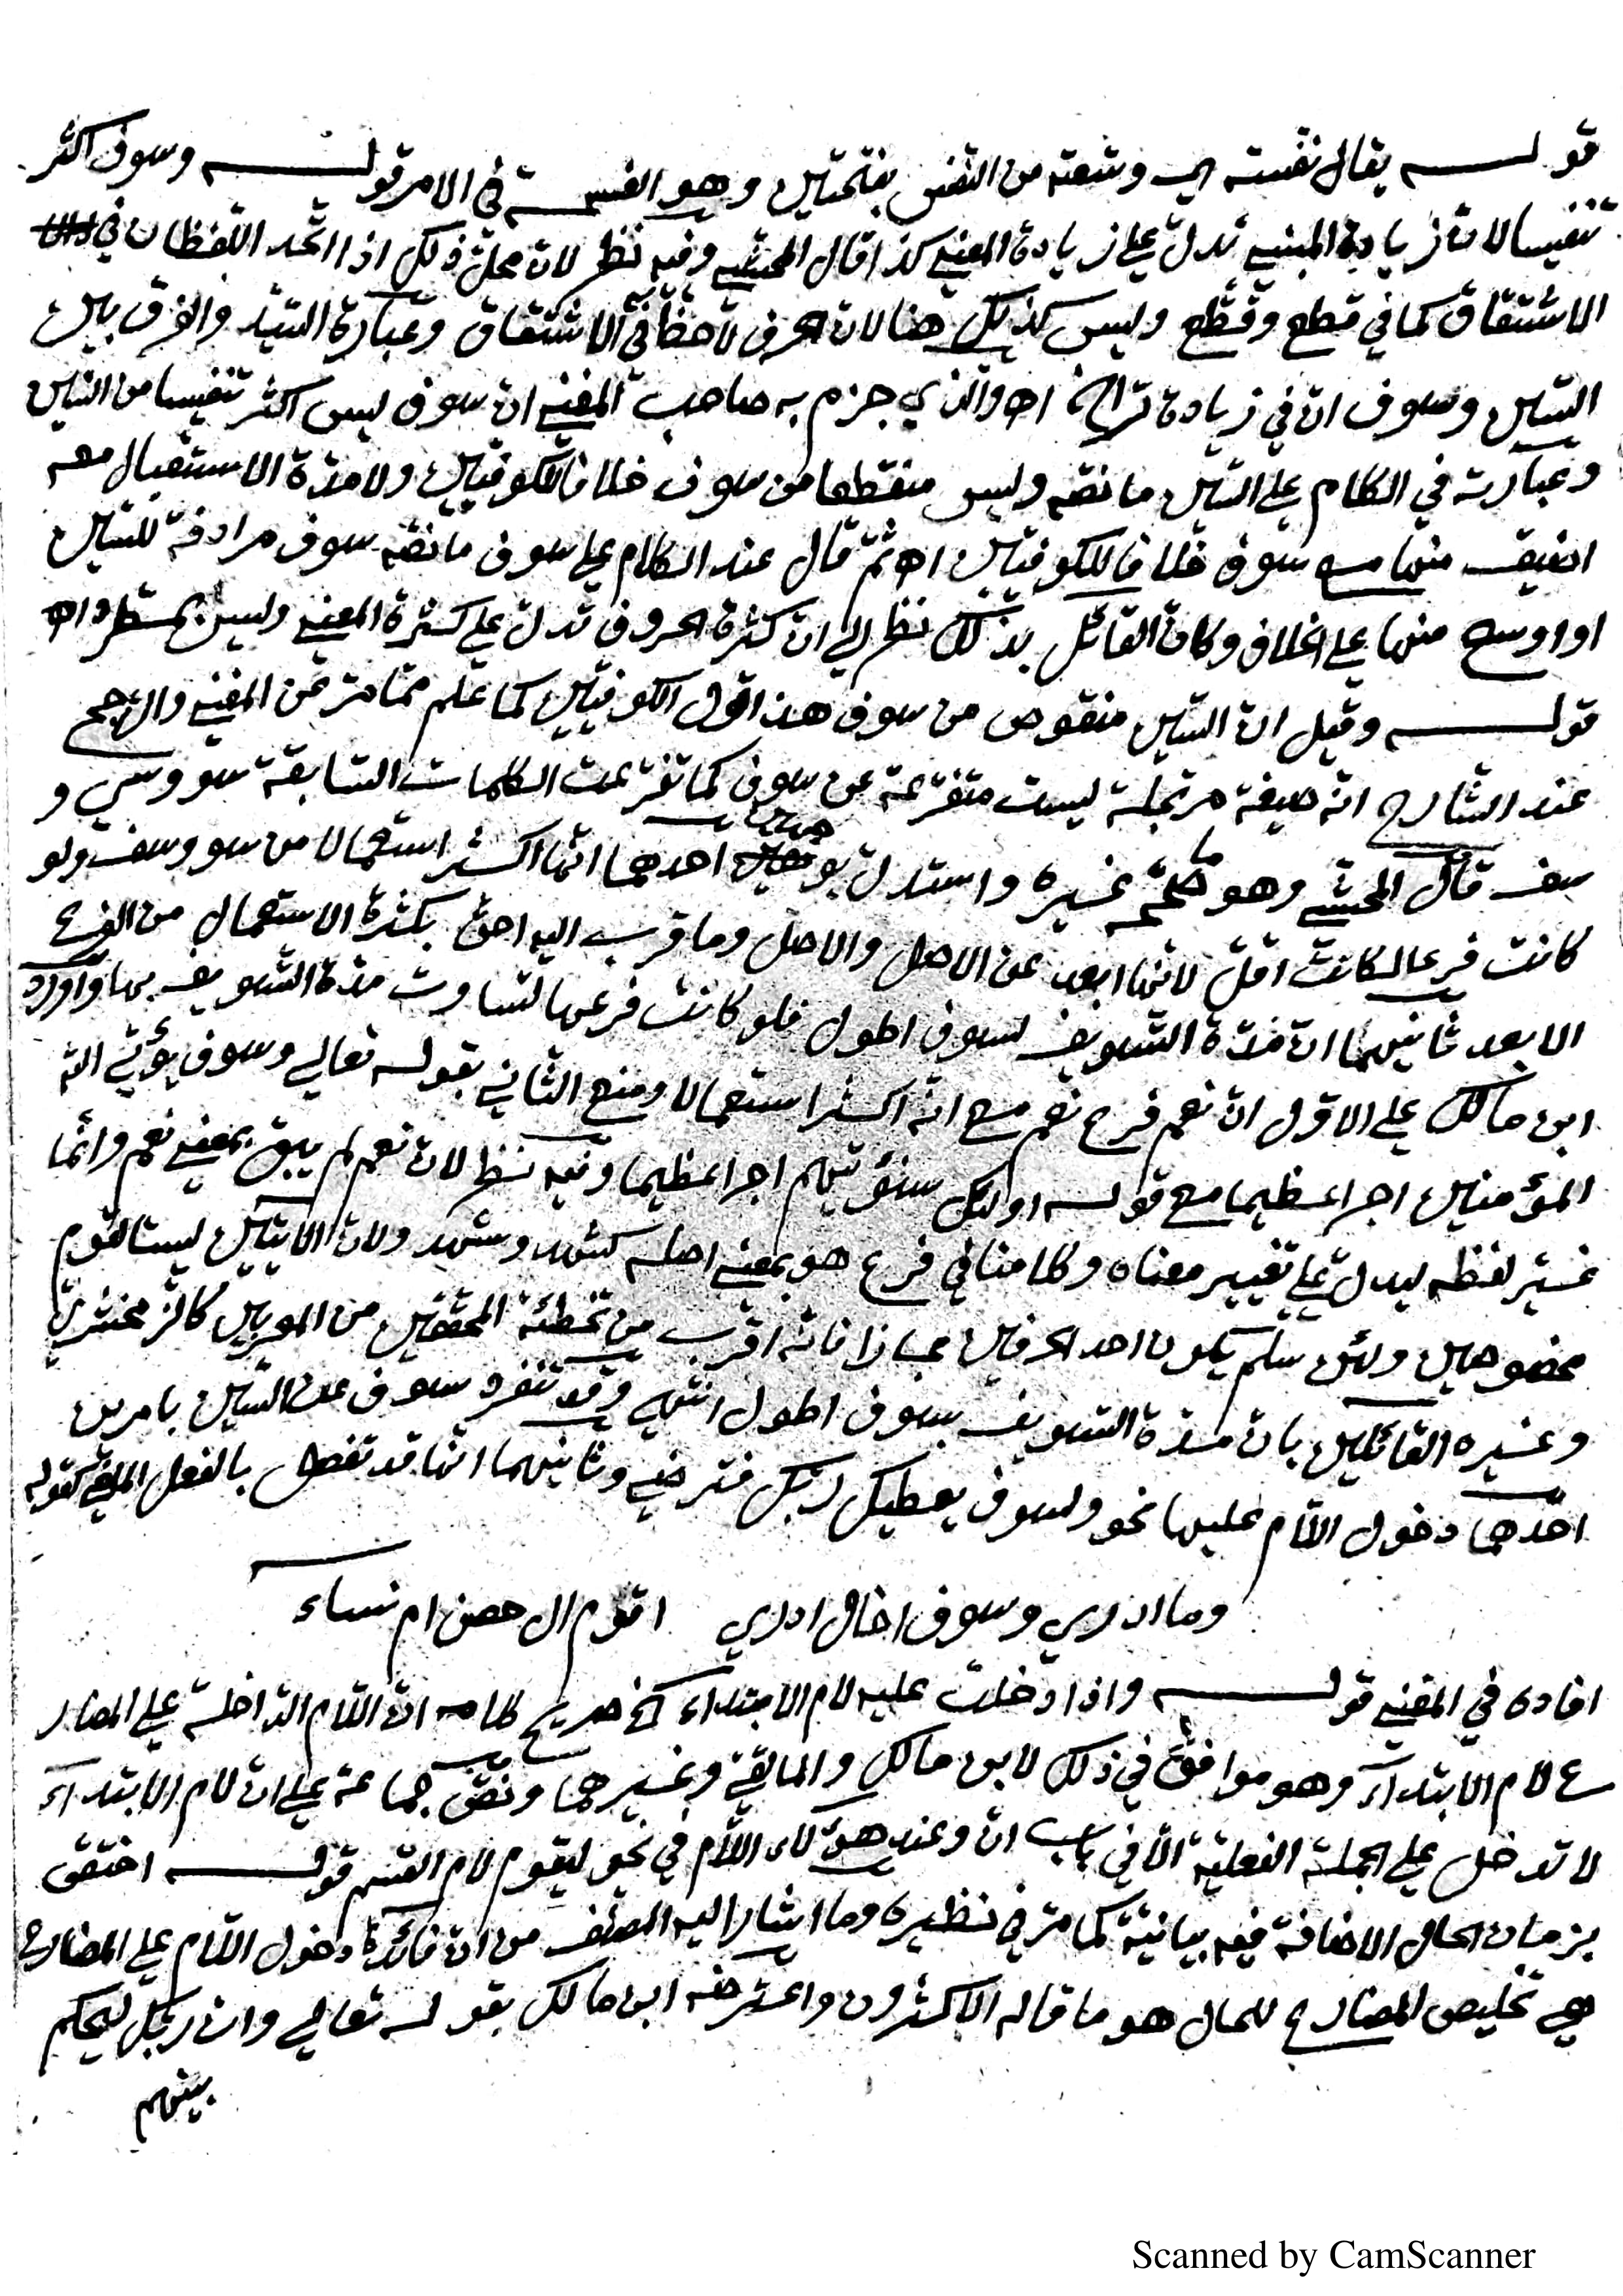 قوله يقال نفسته اي وسّعته من النفس بفتحتين وهو الفسحة في الامر قوله وسوف اكثر
تنفيسا لان زيادة المبنى تدل على زيادة المعنى كذا قال المحشي وفيه نظر لان محل ذلك اذا اتحد اللفظان في
الاشتقاق كما في قطع وقطّع وليس كذلك هنا لان الحرف لا حظ له في الاشتقاق وعبارة السيّد والفرق بين
السين وسوف ان في زيادة تراخ اه والذي جزم به صاحب المغني ان سوف ليس اكثر تنفيسا من السين
وعبارته في الكلام على السين ما نصه وليس منقطعا من سوف خلافا للكوفيين ولا مدة الاستقبال معه
اضيق منها مع سوف خلافا للكوفيين اه ثم قال عند الكلام على سوف ما نصه سوف مرادفة للسين
او اوسع منها على الخلاف وكان القائل بذلك نظر الى ان كثرة الحروف تدل على كثرة المعنى وليس بمطرد اه
قوله وقيل ان السين منقوص من سوف هذا قول الكوفيين كما علم مما مر عن المغني والارجح
عند الشارح انه صيغة مرتجلة ليست متفرعة عن سوف كما تفرعت الكلمات السابقة سو وسي و
سف قال المحشي وهو ما صححه غيره واستدل بوجهين احدهما انها اكثر استعمالا من سو وسف ولو
كانت فرعا لكانت اقل لانها ابعد عن الاصل والاصل وما قرب اليه احق بكثرة الاستعمال من الفرع
الابعد ثانيهما ان مدة التسويف لسوف اطول فلو كانت فرعها لتساوت مدة التسويف بها واورد
ابن مالك على الاول ان نعم فرع نعم مع انه اكثر استعمالا ومنع الثاني بقوله تعالى وسوف يؤتي الله
المؤمنين اجرا عظيما مع قوله اولئك سنؤتيهم اجرا عظيما وفيه نظر لان نعم لم يبق بمعنى نعم وانما
غير لفظه ليدل على تغيير معناه وكلامنا في فرع هو بمعنى اصله كشهد وشهد ولان الايتين ليستا لقوم
مخصوصين ولئن سلم يكون احد الحرفين مجازا فانه اقرب من تخطئة المحققين من العربيين كالزمخشري
وغيره القائلين بان مدة التسويف بسوف اطول انتهى وقد تنفرد سوف عن السين بامرين
احدهما دخول اللام عليها نحو ولسوف يعطيك ربك فترضى وثانيهما انها قد تفصل بالفعل الملغى كقوله
وما ادري وسوف اخال ادري اقوم ال حصن ام نساء
افاده في المغني قوله واذا دخلت عليه لام الابتداء الخ صريح كلامه ان اللام الداخلة على المضار
ع لام الابتداء وهو موافق في ذلك لابن مالك والمالقي وغيرهما ونص جماعة على ان لام الابتداء
لا تدخل على الجملة الفعلية الا في باب ان وعند هؤلاء اللام في نحو ليقوم لام القسم قوله اختص
بزمان الحال الاضافة فيه بيانية كما مر في نظيره وما اشار اليه المصنف من ان فائدة دخول اللام على المضارع
هي تخليص المضارع للحال هو ما قاله الاكثرون واعترضه ابن مالك بقوله تعالى وان ربك ليحكم
بينهم
Scanned by CamScanner